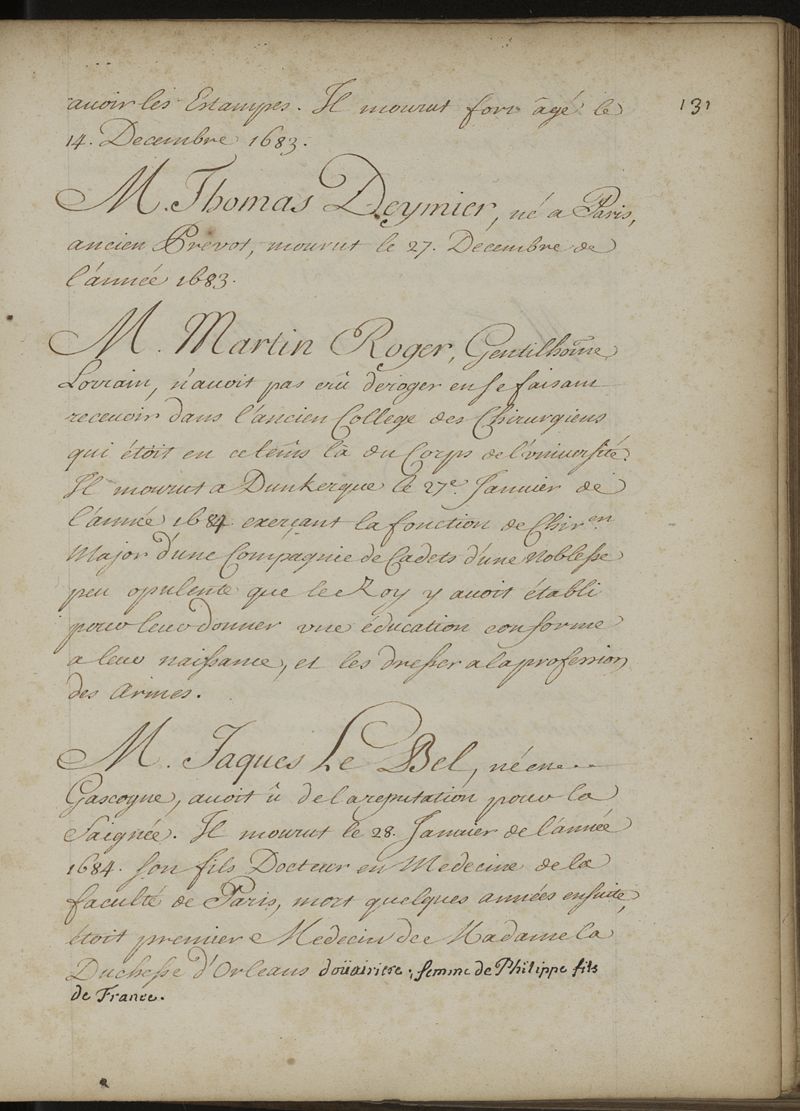 131
avoir les Estampes. Il mourut fort âgé le
14. Decembre 1683.
M. Thomas Deymier, né a Paris,
ancien Prevot, mourut le 27. Decembre de
l'année 1683.
M. Martin Roger, Gentilhom̄e
Lorrain, n'avoit pas crû deroger en se faisant
recevoir dans l'ancien College des Chirurgiens
qui étoit en ce tem̄s là du Corps de l'université.
Il mourut a Dunkerque le 27e. Janvier de
l'année 1684 exerçant la fonction de Chir.en
Major d'une Compagnie de Cadets d'une Noblesse
peu opulente que le Roy y avoit établi
pour leur donner une éducation conforme
a leur naissance, et les dresser a la profession
des Armes.
M. Jaques Le Bel, né en
Gascogne, avoit û de la reputation pour la
Saignée. Il mourut le 28. Janvier de l'année
1684. son fils Docteur en Medecine de la
faculté de Paris, mort quelques années ensuite,
étoit premier Medecin de Madame la
Duchesse d'Orleans doüairiere, femme de Philippe fils
de France.